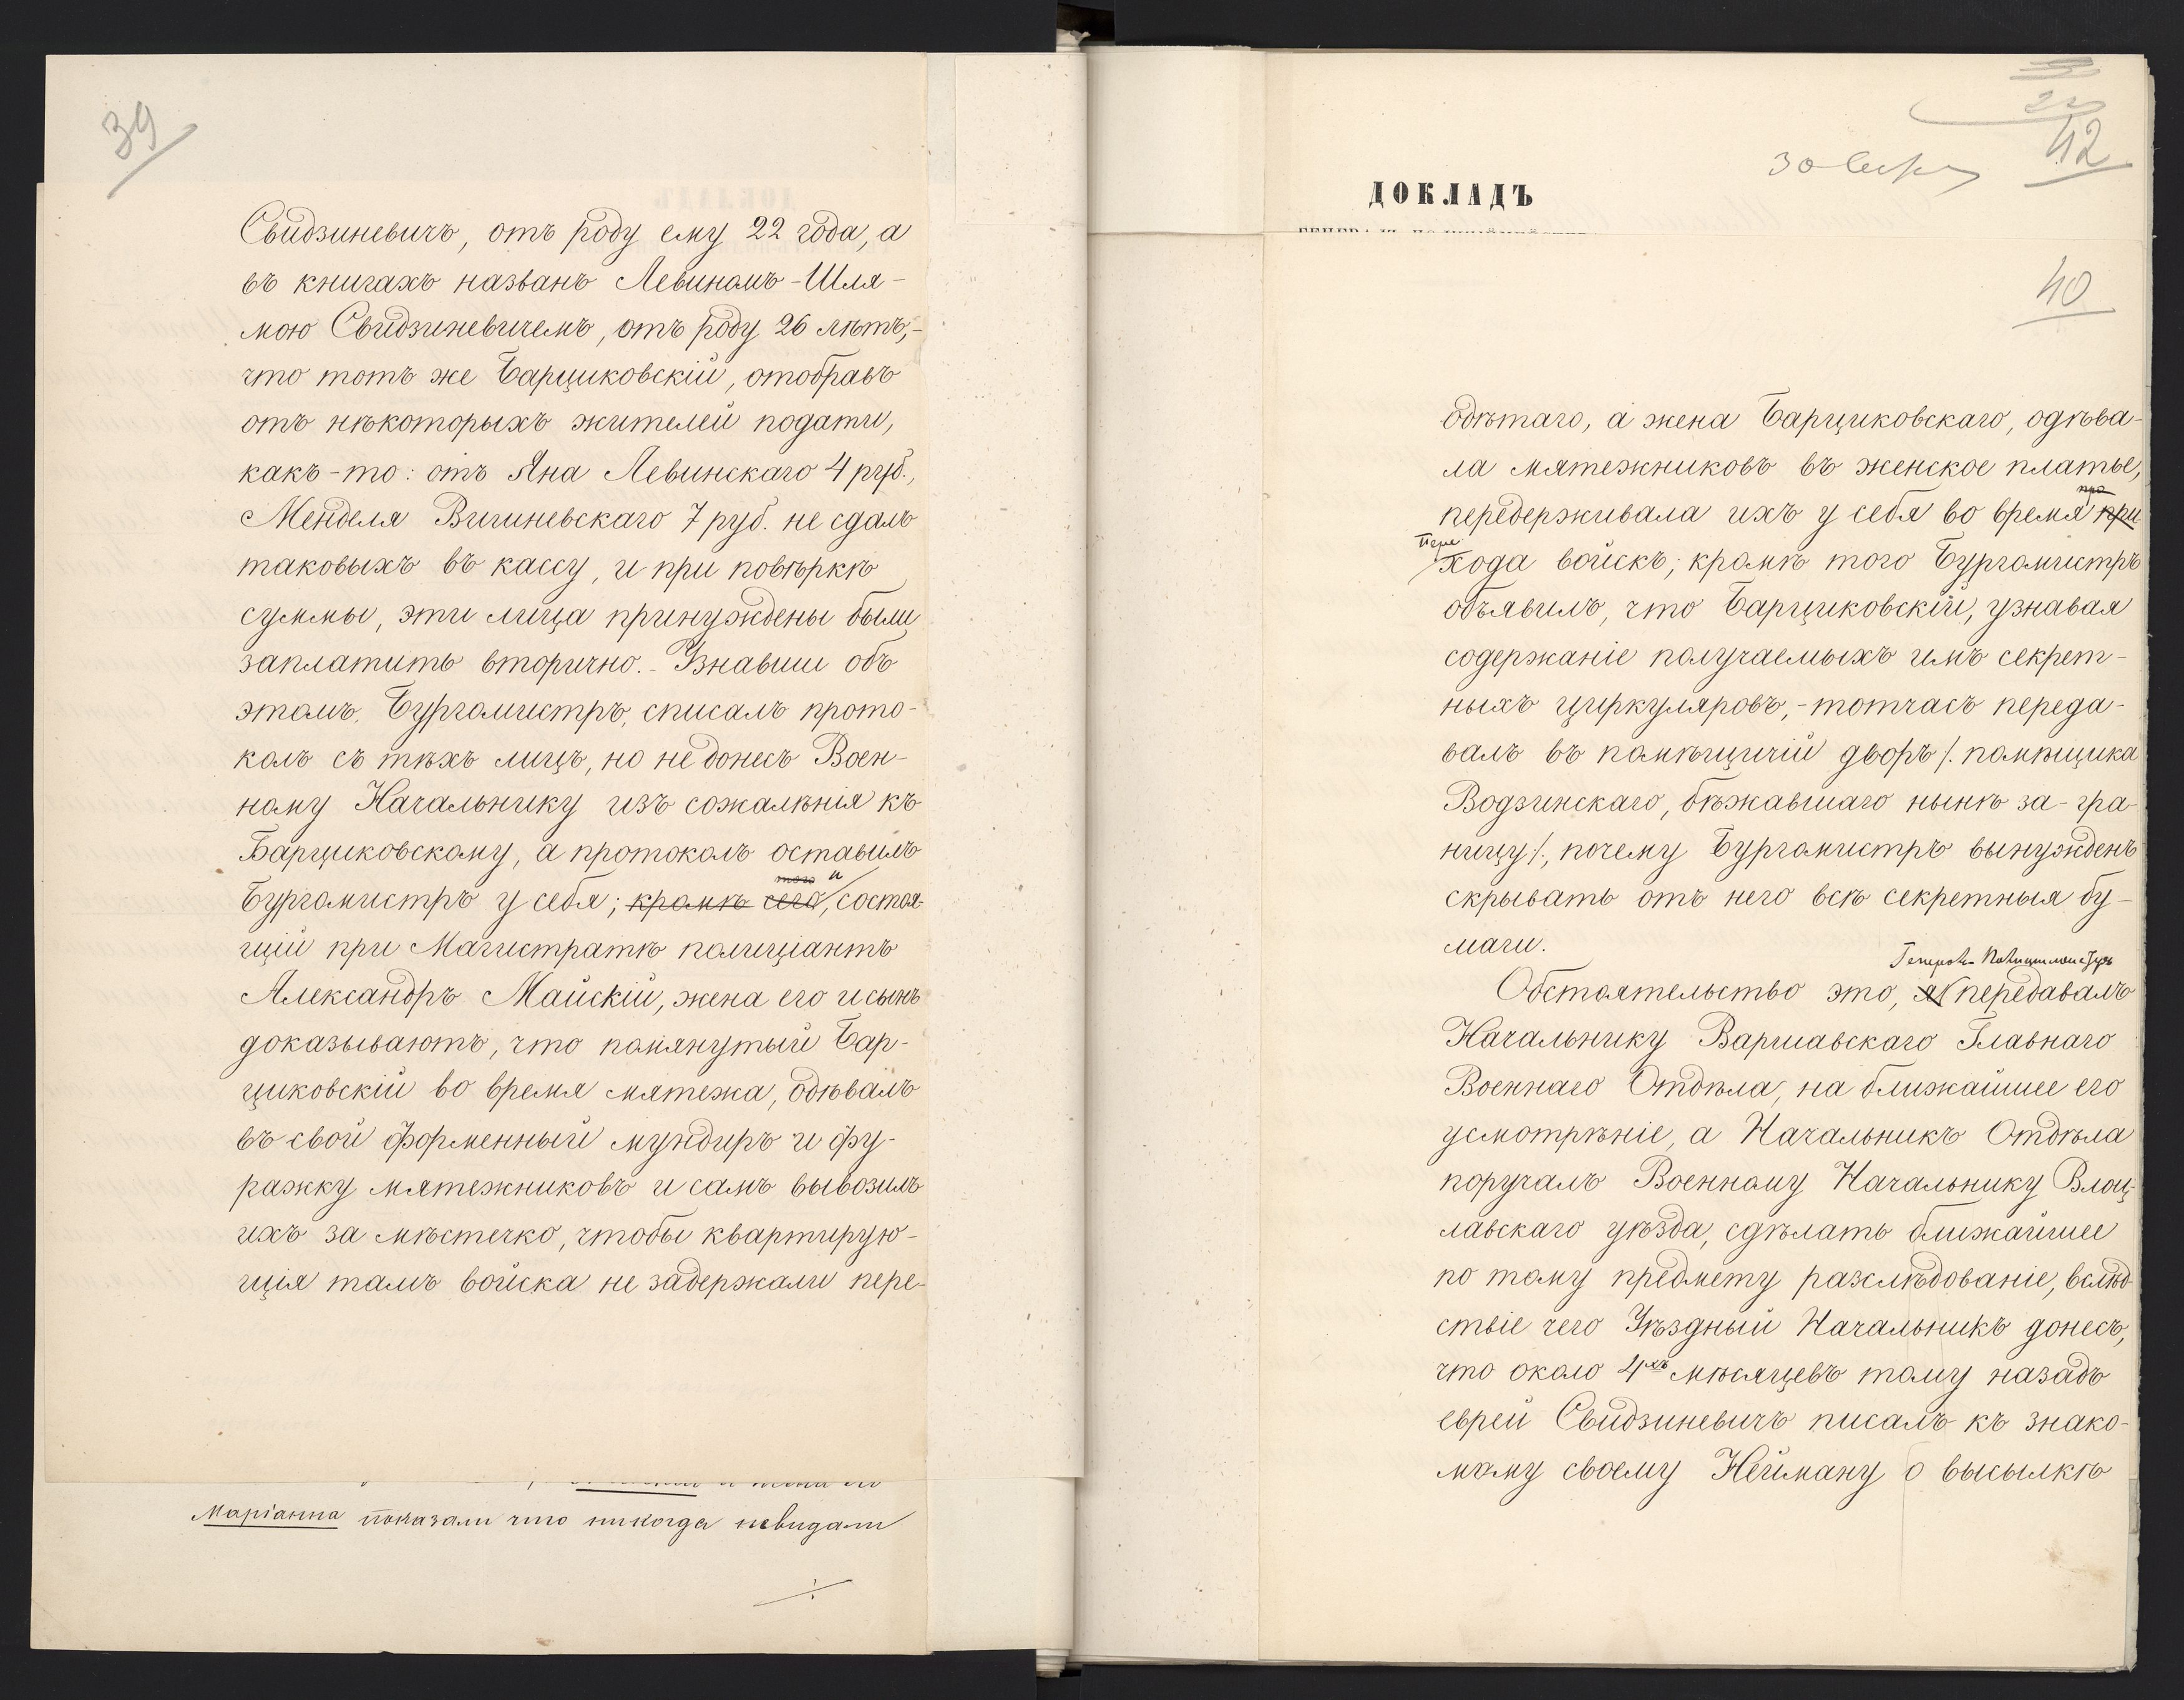 39
Свидзиневичъ, отъ роду ему 22 года, а
въ книгахъ названъ Левиномъ-Шля-
мою Свидзиневичемъ, отъ роду 26 лѣтъ,-
что тотъ же Барциковскій, отобравъ
отъ нѣкоторыхъ жителей подати,
какъ-то: отъ Яна Левинскаго 4 руб.,
Менделя Вишневскаго 7 руб. не сдалъ
таковыхъ въ кассу, и при повѣркѣ
суммы, эти лица принуждены были
заплатить вторично.- Узнавши объ
этомъ, Бургомистръ, списалъ прото-
колъ съ тѣхъ лицъ, но не донесъ Воен-
ному Начальнику изъ сожалѣнія къ
Барциковскому, а протоколъ оставилъ
того и
Бургомистръ у себя; кромѣ сего, состоя-
щій при Магистратѣ полиціантъ
Александръ Майскій, жена его и сынъ
доказываютъ, что помянутый Бар-
циковскій во время мятежа, одѣвалъ
въ свой форменный мундиръ и фу-
ражку мятежниковъ и самъ вывозилъ
ихъ за мѣстечко, чтобы квартирую-
щія тамъ войска не задержали пере-
Маріанна показали что никогда невидали
42
ДОКЛАДЪ
40
одѣтаго, а жена Барциковскаго, одѣва-
ла мятежниковъ въ женское платье,
про
передерживала ихъ у себя во время при-
пере
хода войскъ; кромѣ того Бургомистръ
объявилъ, что Барциковскій, узнавая
содержаніе получаемыхъ имъ секрет-
ныхъ циркуляровъ,-тотчасъ переда-
валъ въ помѣщичій дворъ /. помѣщика
Водзинскаго, бѣжавшаго нынѣ за-гра-
ницу /., почему Бургомистръ вынужденъ
скрывать отъ него всѣ секретныя бу-
маги.
Генералъ-Полицмейстеръ
Обстоятельство это, я передавалъ
Начальнику Варшавскаго Главнаго
Военнаго Отдѣла, на ближайшее его
усмотрѣніе, а Начальникъ Отдѣла
поручалъ Военному Начальнику Влоц-
лавскаго уѣзда, сдѣлать ближайшее
по тому предмету разслѣдованіе, вслѣд-
ствіе чего Уѣздный Начальникъ донесъ,
что около 4хъ мѣсяцевъ тому назадъ
еврей Свидзиневичъ писалъ къ знако-
мому своему Нейману о высылкѣ